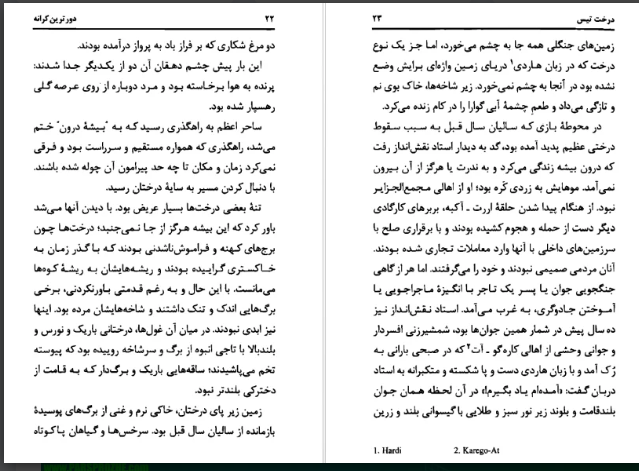 ۲۲ دورترین کرانه
دو مرغ شکاری که بر فراز باد به پرواز درآمده بودند.
این بار پیش چشم دهقان آن دو از یکدیگر جدا شدند:
پرنده به هوا برخاسته بود و مرد دوباره از روی عرصه گلی
رهسپار شده بود.
ساحر اعظم به راهگذری رسید که به "بیشهٔ درون" ختم
می‌شد، راهگذری که همواره مستقیم و سرراست بود و فرقی
نمی‌کرد زمان و مکان تا چه حد پیرامون آن چوله شده باشند.
با دنبال کردن مسیر به سایهٔ درختان رسید.
تنهٔ بعضی درخت‌ها بسیار عریض بود. با دیدن آنها می‌شد
باور کرد که این بیشه هرگز از جا نمی‌جنبید؛ درخت‌ها چون
برج‌های کهنه و فراموش‌ناشدنی بودند که با گذر زمان به
خاکستری گراییده بودند و ریشه‌هایشان به ریشهٔ کوه‌ها
می‌مانست. با این حال و به رغم قدمتی باورنکردنی، برخی
برگ‌هایی اندک و تنک داشتند و شاخه‌هایشان مرده بود. اینها
نیز ابدی نبودند. در میان آن غول‌ها، درختانی باریک و نورس و
بلندبالا با تاجی انبوه از برگ و سرشاخه روییده بود که پیوسته
تخم می‌پاشیدند؛ ساقه‌هایی باریک و برگ‌دار که به قامت از
دخترکی بلندتر نبود.
زمین زیر پای درختان، خاکی نرم و غنی از برگ‌های پوسیدهٔ
بازمانده از سالیان سال قبل بود. سرخس‌ها و گیاهان پاکوتاه
درخت تیس ۲۳
زمین‌های جنگلی همه جا به چشم می‌خورد، اما جز یک نوع
درخت که در زبان هاردی۱ دریای زمین واژه‌ای برایش وضع
نشده بود در آنجا به چشم نمی‌خورد. زیر شاخه‌ها، خاک بوی نم
و تازگی می‌داد و طعم چشمهٔ آبی گوارا را در کام زنده می‌کرد.
در محوطهٔ بازی که سالیان سال قبل به سبب سقوط
درختی عظیم پدید آمده بود، گد به دیدار استاد نقش‌انداز رفت
که درون بیشه زندگی می‌کرد و به ندرت یا هرگز از آن بیرون
نمی‌آمد. موهایش به زردی کَره بود؛ او از اهالی مجمع‌الجزایر
نبود. از هنگام پیدا شدن حلقهٔ اررت ـ آکبه، بربرهای کارگادی
دیگر دست از حمله و هجوم کشیده بودند و با برقراری صلح با
سرزمین‌های داخلی با آنها وارد معاملات تجاری شده بودند.
آنان مردمی صمیمی نبودند و خود را می‌گرفتند. اما هر از گاهی
جنگجویی جوان یا پسر یک تاجر با انگیزهٔ ماجراجویی یا
آموختن جادوگری، به غرب می‌آمد. استاد نقش‌انداز نیز
ده سال پیش در شمار همین جوان‌ها بود، شمشیرزنی افسردار
و جوانی وحشی از اهالی کاره‌گو ـ آت۲ که در صبحی بارانی به
رُک آمد و با زبان هاردی دست و پا شکسته و متکبرانه به استاد
دربان گفت: «آمده‌ام یاد بگیرم!» در آن لحظه همان جوان
بلندقامت و بلوند زیر نور سبز و طلایی با گیسوانی بلند و زرین
1. Hardi 2. Karego-At